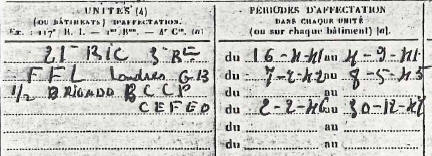 UNITÉS (4)
(OU BÂTIMENTS) D'AFFECTATION.
PÉRIODES D'AFFECTATION
DANS CHAQUE UNITÉ
(ou sur chaque bâtiment) [a].
21e RIC 3 Bie
du 16-4-41 au 4-9-41
FFL Londres G.B
du 7-2-42 au 8-5-45
1/2 BRIGADE BCCP
CEFEO
du 2-2-46 au 30-12-47
du au
du au